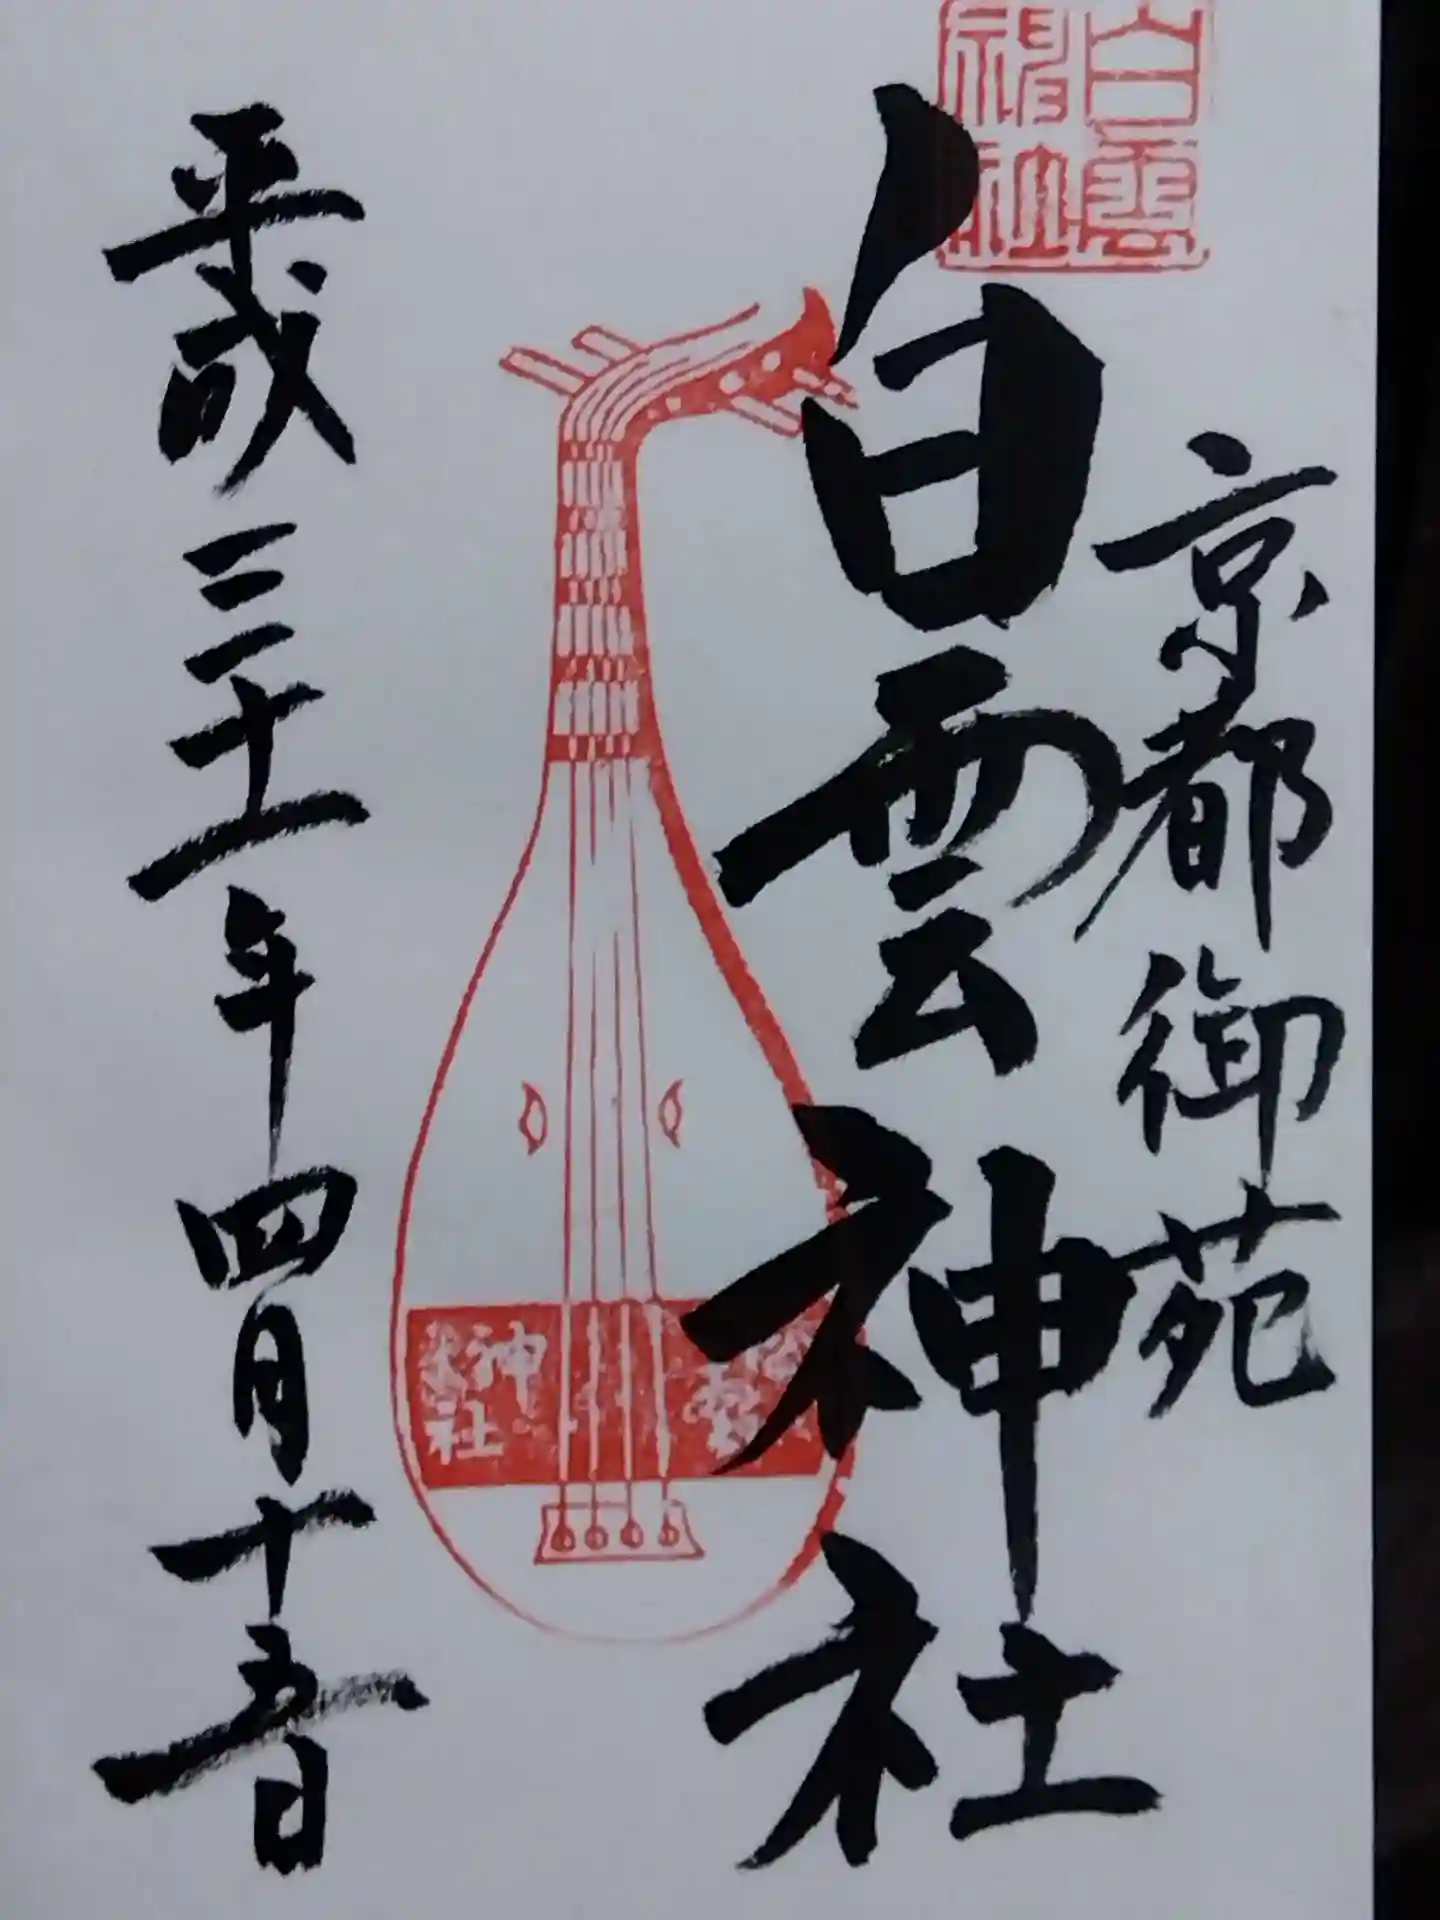 京都御苑
白雲神社
白雲
神社
平成三十一年四月十五日
神社